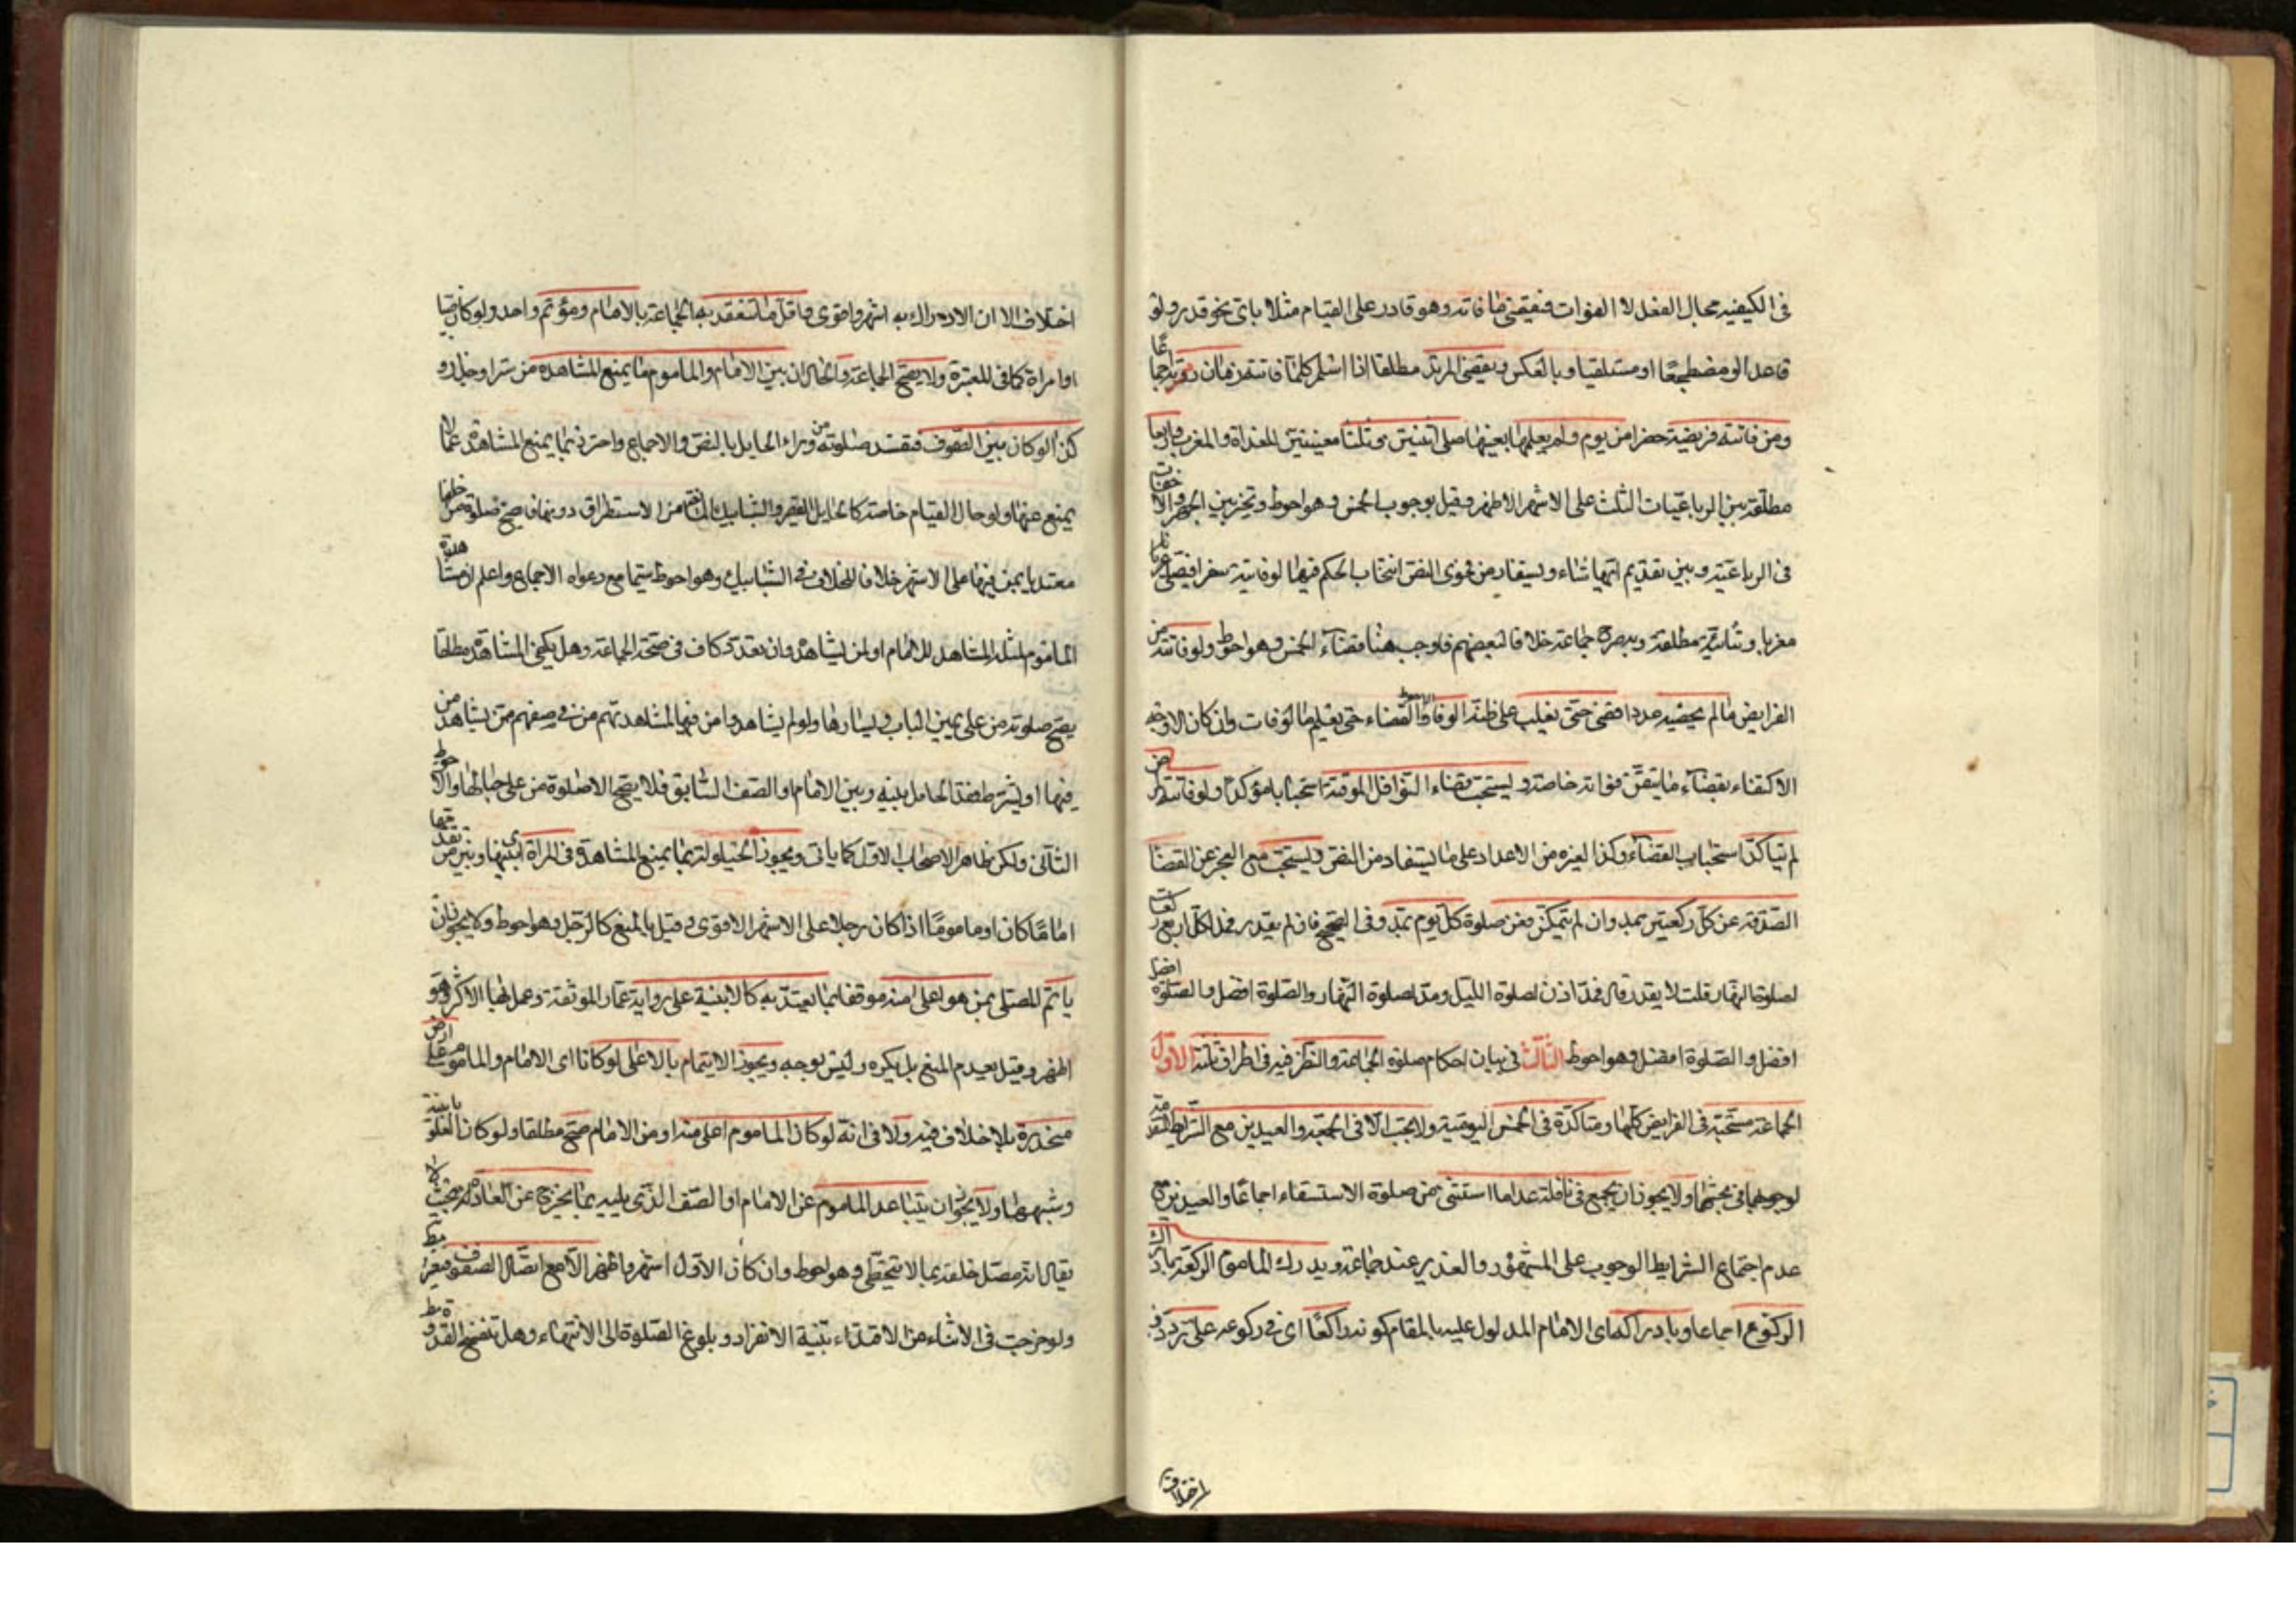 فى الكيفيه بحال الفعل لا الفوات فيقضى ما فاته وهو قادر على القيام مثلا باى نحو قدر ولو
قاعدا او مضطجعا او مستلقيا وبالعكس ويقضى المرتد مطلقا اذا اسلم كلما فاتته زمان ردته اجماعا
ومن فاتته فريضة حضرا من يوم ولم يعلمها بعينها صلى اثنتين وثلثا معينتين الغداة والمغرب واربعا
مطلقة بين الرباعيات الثلث على الاشهر الاظهر وقيل بوجوب الخمس وهو احوط وتخير بين الجهر والاخفات
فى الرباعية وبين تقديم ايها شاء ويستفاد من فحوى النص انسحاب الحكم فيما لو فاتته سفرا فيصلى
مغربا وثنائية مطلقة وبه صرح جماعة خلافا لبعضهم فاوجب هنا قضاء الخمس وهو احوط ولو فاتته من
الفرايض ما لم يحصه عددا قضى حتى يغلب على ظنه الوفاء والاحوط القضاء حتى يعلم الوفات وان كان الاوجه
الاكتفاء بقضاء ما تيقن فواته خاصة ويستحب قضاء النوافل الموقتة استحبابا مؤكدا ولو فاتته لمرض
لم يتاكد استحباب القضاء وكذا لغيره من الاعذار على ما يستفاد من النص ويستحب مع العجز عن القضا
الصدقة عن كل ركعتين بمد وان لم يتمكن فعن صلوة كل يوم بمد وفى الصحيح فان لم يقدر فمد لكل اربع ركعات
لصلوة النهار قلت لا يقدر قال فمد اذن لصلوة الليل ومد لصلوة النهار والصلوة افضل والصلوة افضل
افضل والصلوة افضل وهو احوط الثالث فى بيان احكام صلوة الجماعة والنظر فيه فى اطراف ثلثة الاول
الجماعة مستحبة فى الفرايض كلها ومتاكدة فى الخمس اليومية ولا يجب الا فى الجمعة والعيدين مع الشرايط المتقدمة
لوجوبهما فى بحثهما ولا يجوز ان يجمع فى نافلة عدا ما استثنى من صلوة الاستسقاء اجماعا والعيدين مع
عدم اجتماع الشرايط الوجوب على المشهور والغدير عند جماعة ويدرك الماموم الركعة بادراك
الركوع اجماعا وبادراكه اى الامام المدلول عليه بالمقام كونه راكعا اى فى ركوعه على تردد و
اختلاف
اختلاف الا ان الادراك به اشهر واقوى واقل ما تنعقد به الجماعة بالامام ومؤتم واحد ولو كان صبيا
او امراة كما فى المعتبرة ولا يصح الجماعة والحال ان بين الامام والماموم ما يمنع المشاهدة من ستر او جدار و
كذا لو كان بين الصفوف فيفسد صلوته من وراء الحايل بالنص والاجماع واحترز بما يمنع المشاهدة عما لا
يمنع عنها ولو حال القيام خاصة كالحايل القصير والشبابيك المانعة من الاستطراق دونها فيصح صلوة من خلفها
معتدا بمن فيها على الاشهر خلافا للخلاف فى الشبابيك وهو احوط سيما مع دعواه الاجماع واعلم ان مشاهدة
الماموم لمثله المشاهد للامام او لمن يشاهده وان تعدد كاف فى صحة الجماعة وهل يكفى المشاهدة مطلقا
يصح صلوة من على يمين الباب ويسارها ولو لم يشاهدوا من فيها لمشاهدتهم من فى صفهم ممن يشاهد من
فيها او يشترط فقد الحايل بينه وبين الامام او الصف السابق فلا يصح الا صلوة من على حيالها والاحوط
الثانى ولكن ظاهر الاصحاب الاول كما ياتى ويجوز الحيلولة بما يمنع المشاهدة فى المراة اى بينها وبين من تقدمها
اماما كان او ماموما اذا كان رجلا على الاشهر الاقوى وقيل بالمنع كالرجل وهو احوط ولا يجوز ان
ياتم المصلى بمن هو اعلى منه موقفا بما يعتد به كالابنية على رواية عمار الموثقة وعمل بها الاكثر وهو
اظهر وقيل بعدم المنع بل يكره وليس بوجه ويجوز الايتمام بالاعلى لو كانا اى الامام والماموم على ارض
منحدرة بلا خلاف فيه ولا فى انه لو كان الماموم اعلى منه او من الامام صح مطلقا ولو كان العلو بابنية
وشبهها ولا يجوز ان يتباعد الماموم عن الامام او الصف الذى يليه بما يخرج عن العادة بحيث لا
يقال انه مصل خلفه بما لا يتخطى وهو احوط وان كان الاول اشهر واظهر الا مع اتصال الصفوف
ولو خرجت فى الاثناء عن الاقتداء بنية الانفراد وبلوغ الصلوة الى الانتهاء وهل تنفسخ القدوة